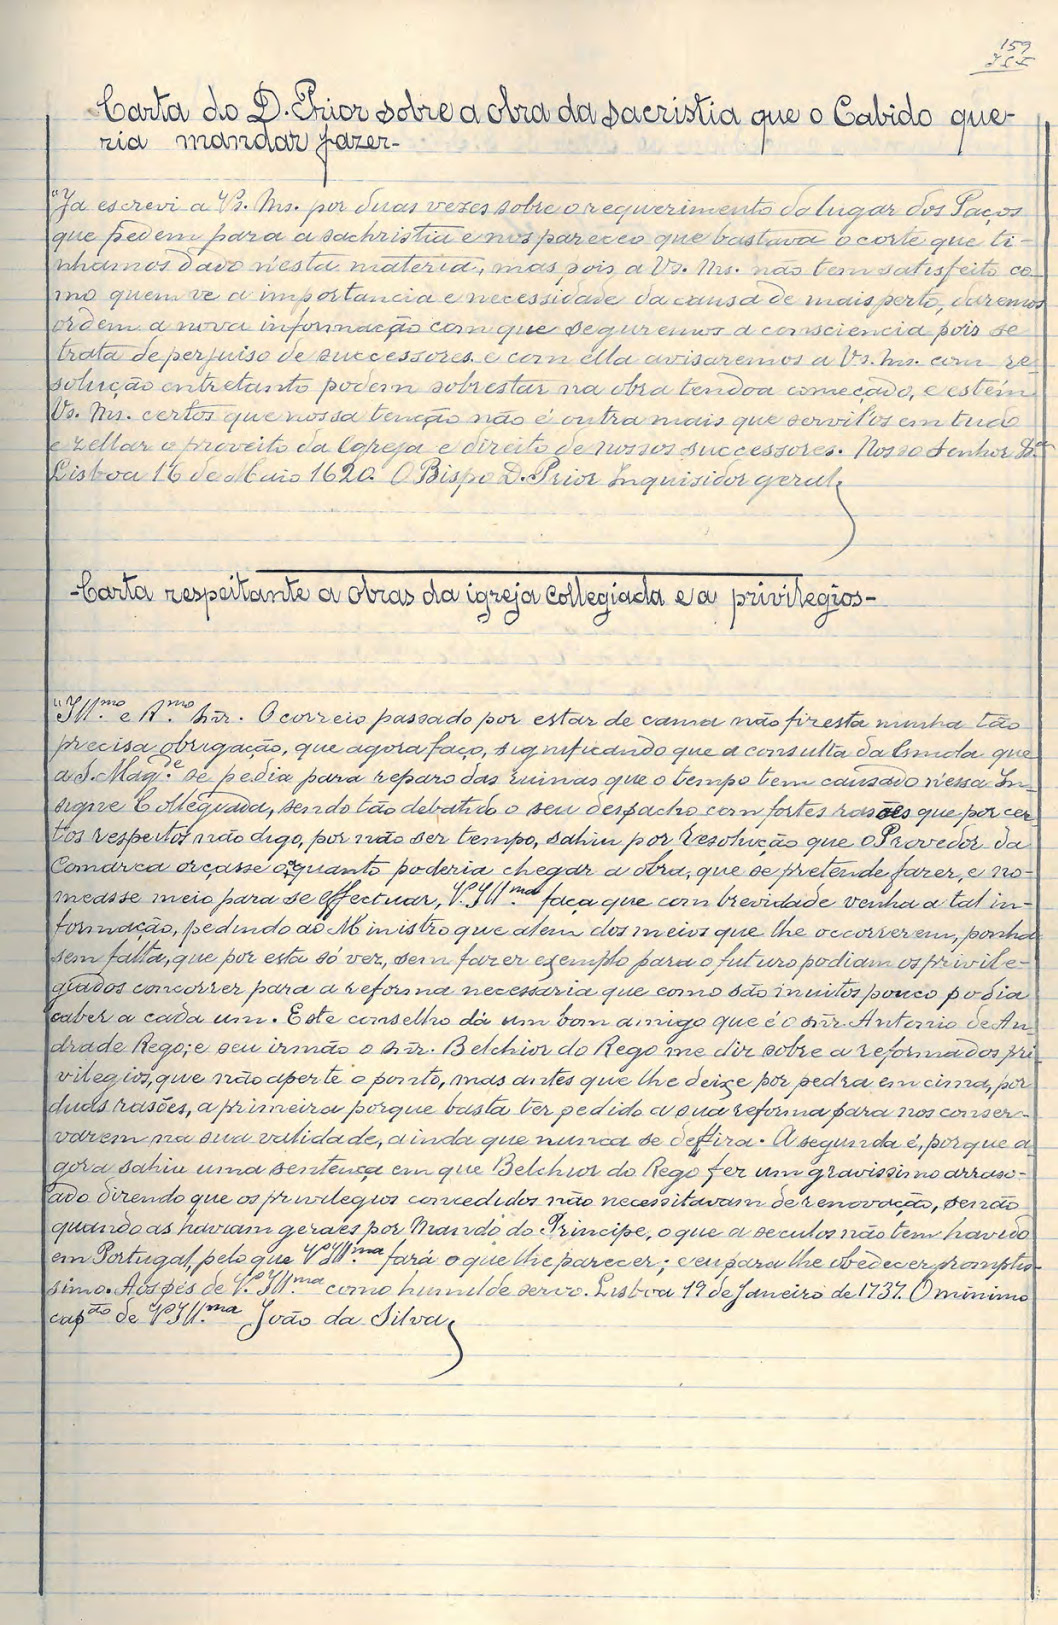 159
Carta do D. Prior sobre a obra da sacristia que o Cabido que-
ria mandar fazer-
"Ja escrevi a Vs. Ms. por duas vezes sobre o requerimento do lugar dos Paços
que pedem para a sachristia e nos pareceo que bastava o corte que ti-
nhamos dado n'esta materia, mas pois a Vs. Ms. não tem satisfeito co-
mo quem ve a importancia e necessidade da causa de mais perto, daremos
ordem a nova informação com que seguremos a consciencia pois se
trata de perjuiso de successores e com ella avisaremos a Vs. Ms. com re
solução entretanto podem sobrestar na obra tendoa começado, e estem
Vs. Ms. certos que nossa tenção não é outra mais que servilos em tudo
e zellar o proveito da Igreja e direito de nossos successores. Nosso Senhor
Lisboa 16 de Maio 1620. O Bispo D. Prior Inquisidor geral,
-Carta respeitante a obras da igreja collegiada e a privilegios-
"Ill.mo e R.mo Snr. O correio passado por estar de cama não fiz esta minha tão
precisa obrigação, que agora faço, significando que a consulta da Esmola que
a S. Mag.de se pedia para reparo das ruinas que o tempo tem causado n'essa In-
signe Collegiada, sendo tão debatido o seu despacho com fortes rasões que por cer
tos respeitos não digo, por não ser tempo, sahiu por Resolução que o Provedor da
Comarca orçasse o quanto poderia chegar a obra, que se pretende fazer, e no-
measse meio para se effectuar, V. Ill.ma faça que com brevidade venha a tal in-
formação, pedindo ao Ministro que alem dos meios que lhe occorrerem, ponha
sem falta, que por esta só vez, sem fazer exemplo para o futuro podiam os privile-
giados concorrer para a reforma necessaria que como são muitos pouco podia
caber a cada um. Este conselho dá um bom amigo que é o snr. Antonio de An
drade Rego; e seu irmão o snr. Belchior do Rego me diz sobre a reforma dos pri
vilegios, que não aperte o ponto, mas antes que lhe deixe por pedra em cima, por
duas rasões, a primeira porque basta ter pedido a sua reforma para nos conser-
varem na sua validade, ainda que nunca se deffira. A segunda é, porque a
gora sahiu uma sentença em que Belchior do Rego fez um gravissimo arraso-
ado dizendo que os privilegios concedidos não necessitavam de renovação, senão
quando as haviam geraes por Mando do Principe, o que a seculos não tem havido
em Portugal, pelo que V. Ill.ma fará o que lhe parecer; e eu para lhe obedecer promptis-
simo. Aos pés de V. Ill.ma como humilde servo. Lisboa 19 de Janeiro de 1737. O minimo
cap.ão de V. Ill.ma João da Silva,